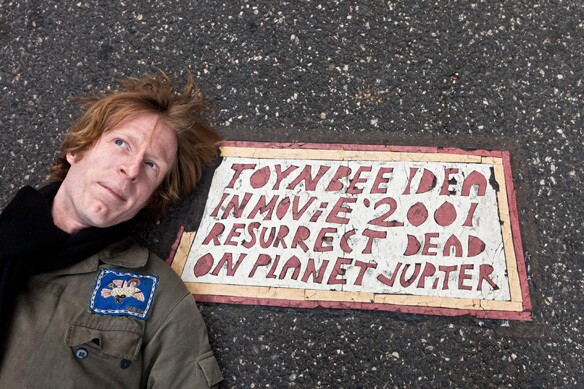 TOYNBEE IDEA
IN MOViE '2001
RESURRECT DEAD
ON PLANET JUPiTER